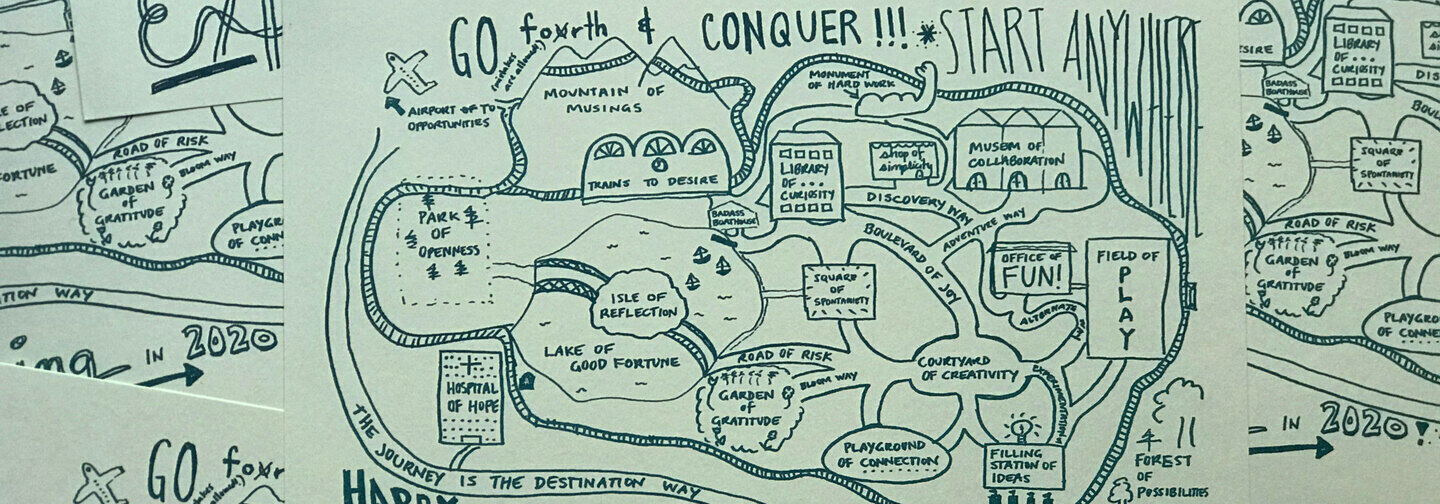 GO foxrth & CONQUER!!! *START ANYWHERE
(mistakes are allowed)
AIRPORT OF TO
OPPORTUNITIES
MOUNTAIN OF
MUSINGS
MONUMENT
OF HARD WORK
TRAINS TO DESIRE
LIBRARY
OF...
CURIOSITY
Shop of
Simplicity
MUSEM OF
COLLABORATION
DISCOVERY WAY
ADVENTURE WAY
BOULEVARD OF JOY
BADASS
BOATHOUSE
PARK
OF
OPENNESS
ISLE OF
REFLECTION
LAKE OF
GOOD FORTUNE
SQUARE
OF
SPONTANIETY
OFFICE OF
FUN!
FIELD OF
PLAY
ALTERNATE WAY
COURTYARD
OF CREATIVITY
EXPERIMENTATION
ROAD OF RISK
BLOOM WAY
GARDEN
of
GRATITUDE
HOSPITAL
OF HOPE
PLAYGROUND
OF CONNECTION
FILLING
STATION OF
IDEAS
FOREST
OF
POSSIBILITIES
THE JOURNEY IS THE DESTINATION WAY
HAPPY
OF
REFLECTION
FORTUNE
ROAD OF RISK
BLOOM WAY
GARDEN
of
GRATITUDE
PLAYGR
OF CONN
NATION WAY
IN 2020
GO foxr
ESIRE
LIBRARY
OF...
CURIOSITY
BADASS
BOATHOUSE
DIS
BOUL
SQUARE
OF
SPONTANIETY
ROAD OF RISK
BLOOM WAY
GARDEN
of
GRATITUDE
PLAYGROUN
OF CONNEC
IN 2020!